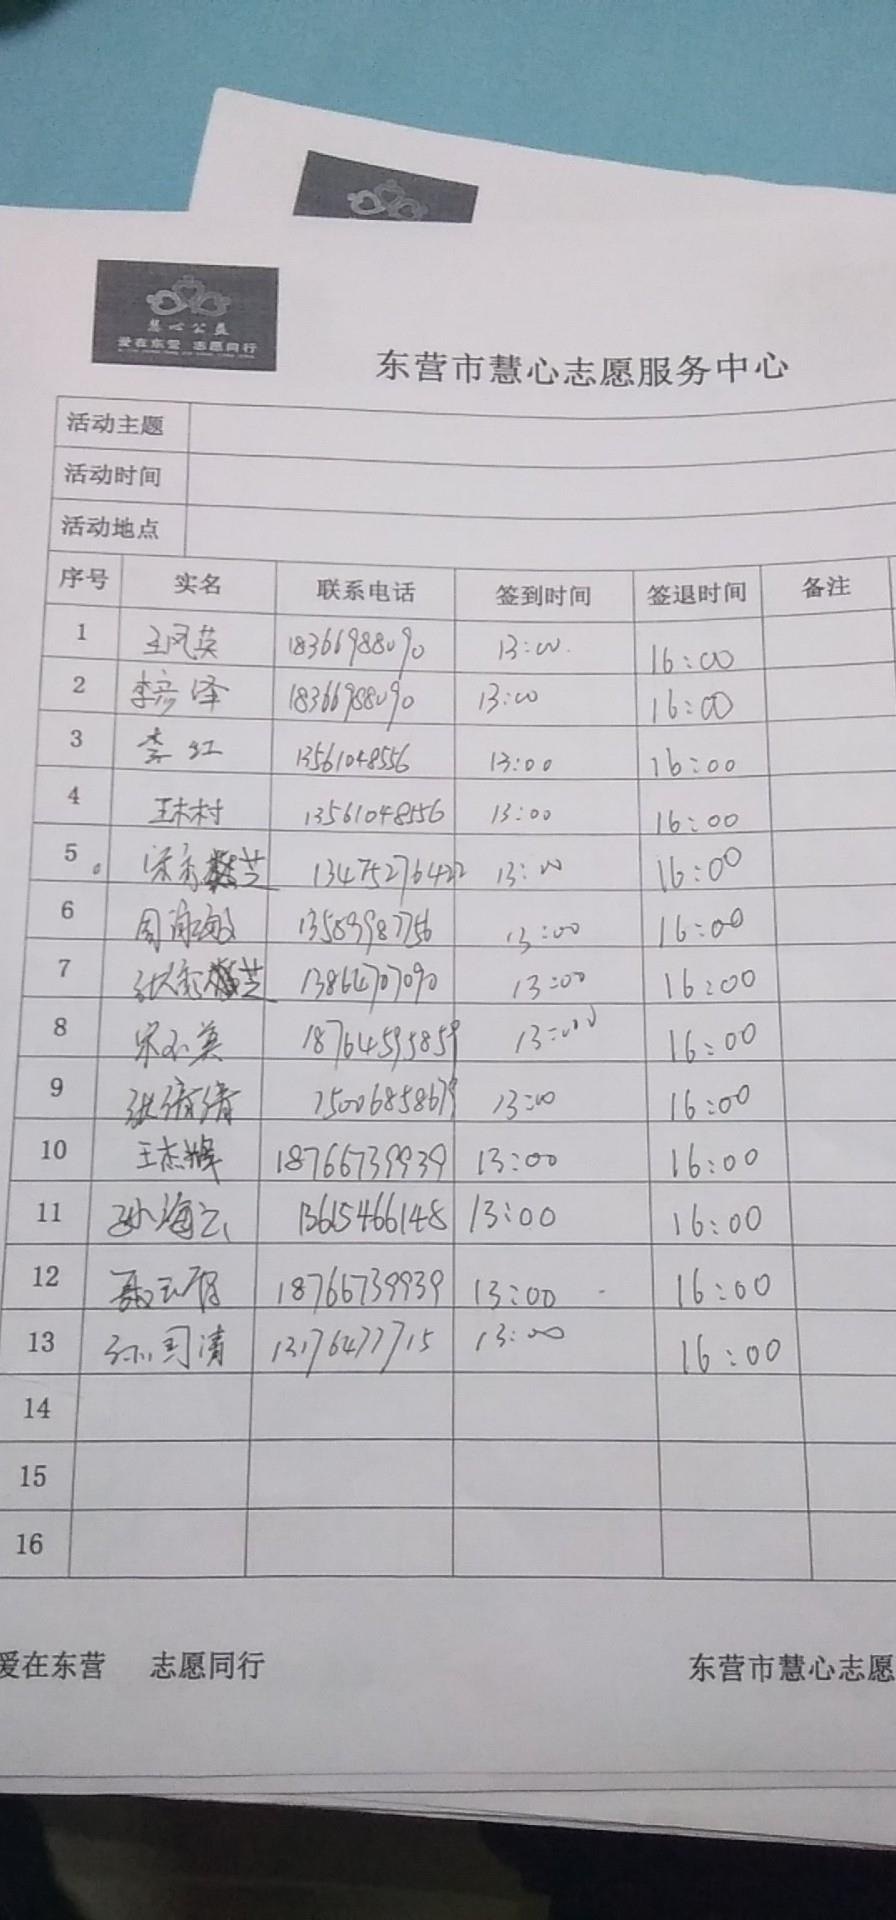 慧心公益
爱在东营 志愿同行
东营市慧心志愿服务中心
活动主题
活动时间
活动地点
序号 实名 联系电话 签到时间 签退时间 备注
1 王凤英 18366988090 13:00 16:00
2 李彦泽 18366988090 13:00 16:00
3 李红 13561048556 13:00 16:00
4 王木村 13561048556 13:00 16:00
5 芝 13475276422 13:00 16:00
6 周 13589987756 13:00 16:00
7 张 芝 13864707090 13:00 16:00
8 宋小英 18764595859 13:00 16:00
9 张倩倩 15006858679 13:00 16:00
10 王志辉 18766739939 13:00 16:00
11 孙海云 13615466148 13:00 16:00
12 18766739939 13:00 16:00
13 孙国清 13176477715 13:00 16:00
14
15
16
爱在东营 志愿同行 东营市慧心志愿